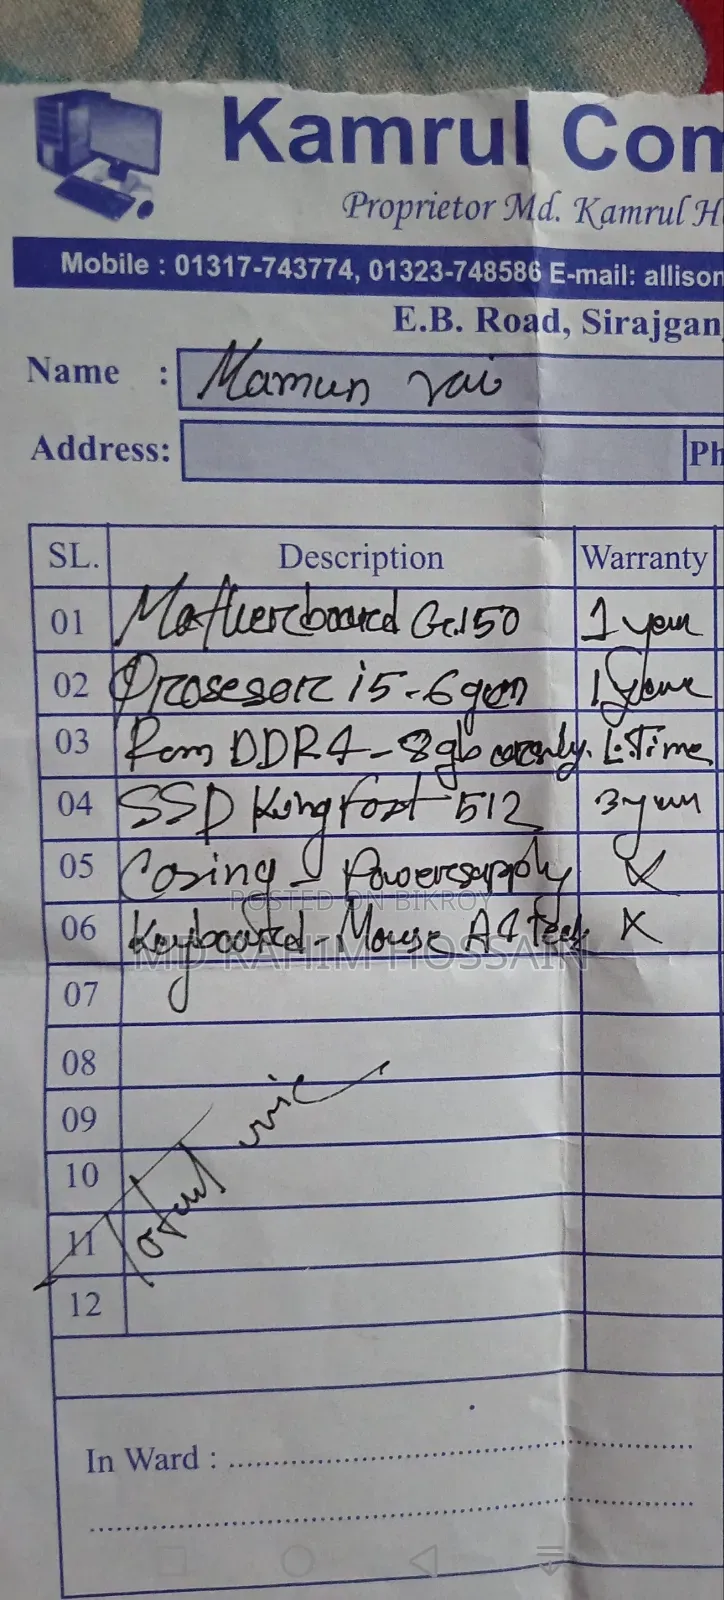 Kamrul Com
Proprietor Md. Kamrul H
Mobile : 01317-743774, 01323-748586 E-mail: allison
E.B. Road, Sirajgan
Name : Mamun vai
Address: Ph
SL. Description Warranty
01 Motherboard G.150 1 year
02 Prosesor i5-6gen 1 year
03 Ram DDR4-8gb L.Time
04 SSD Kingfast 512 3 year
05 Casing - Powersupply X
06 Keyboard-Mouse A4 Tech X
POSTED ON BIKROY
MD RAHIM HOSSAIN
07
08
09
10
11
12
In Ward :